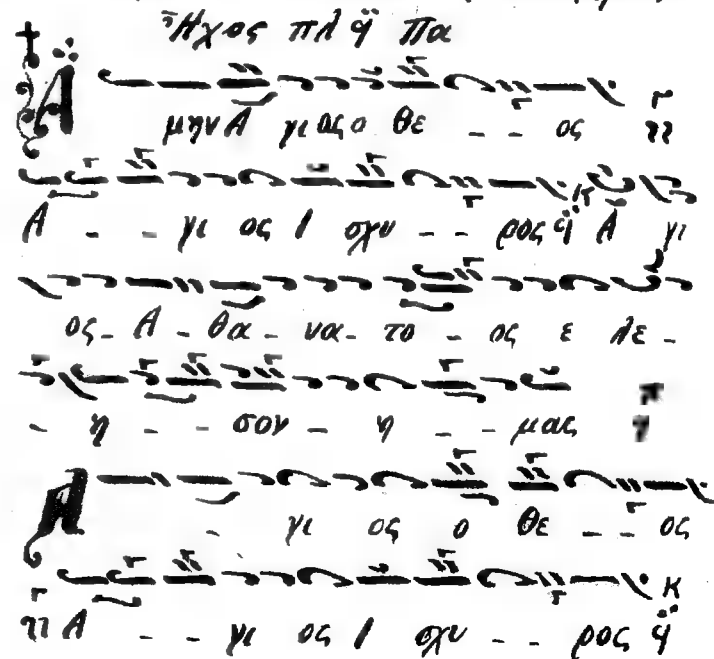 Ἦχος πλ ᾳ̈ Πα
Ἀ μην Α γι ος ο θε - - ος
Α - - γι ος Ι σχυ - - ρος ᾳ̈ Α γι
ος - Α - θα - να - το - ος ε λε -
- η - - σον - η - - μας
Α - γι ος ο θε - - ος
Α - - γι ος Ι σχυ - - ρος ᾳ̈